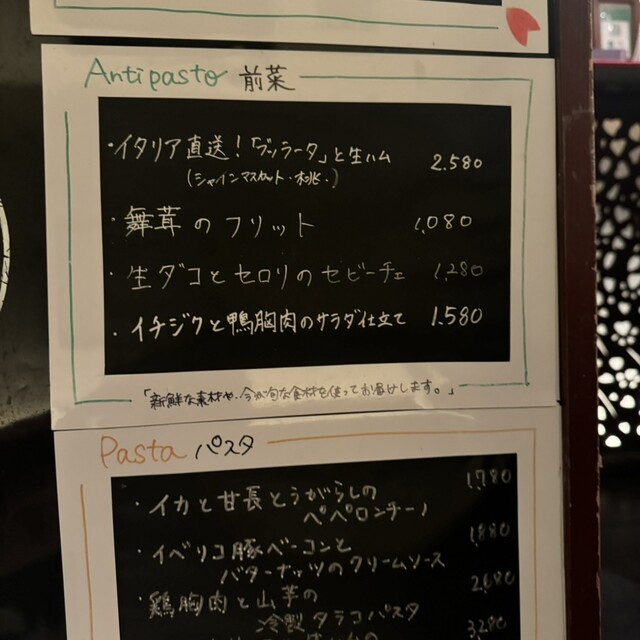 Antipasto 前菜
・イタリア直送！「ブッラータ」と生ハム 2.580
(シャインマスカット・桃・)
・舞茸のフリット 1,080
・生ダコとセロリのセビーチェ 1,280
・イチジクと鴨胸肉のサラダ仕立て 1.580
「新鮮な素材や、今が旬な食材を使ってお届けします。」
Pasta パスタ
・イカと甘長とうがらしの 1,780
ペペロンチーノ
・イベリコ豚ベーコンと 1,880
バターナッツのクリームソース
・鶏胸肉と山芋の 2,680
冷製タラコパスタ
3,280